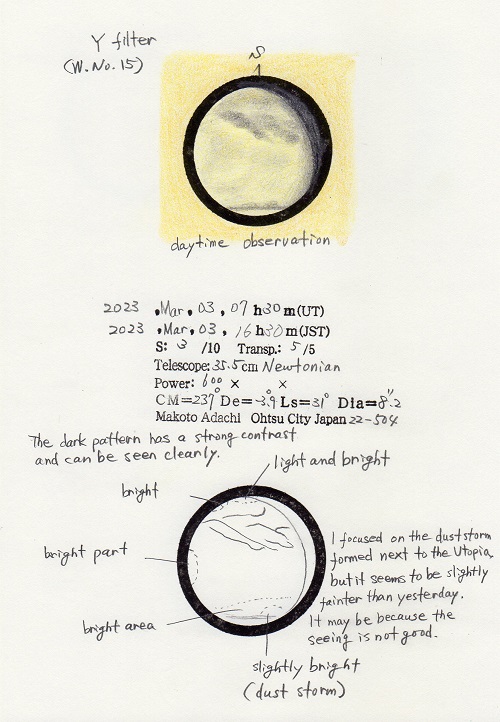 Y filter
(W. No. 15)
S
daytime observation
2023 . Mar. 03, 07 h 30 m (UT)
2023 . Mar. 03, 16 h 30 m (JST)
S: 3 /10 Transp.: 5 /5
Telescope: 35.5 cm Newtonian
Power: 600 × ×
CM=237° De=-3.9° Ls=31° Dia=8.″2
Makoto Adachi Ohtsu City Japan 22-504
The dark pattern has a strong contrast
and can be seen cleanly.
light and bright
bright
bright part
I focused on the dust storm
formed next to the Utopia,
but it seems to be slightly
fainter than yesterday.
It may be because the
seeing is not good.
bright area
slightly bright
(dust storm)